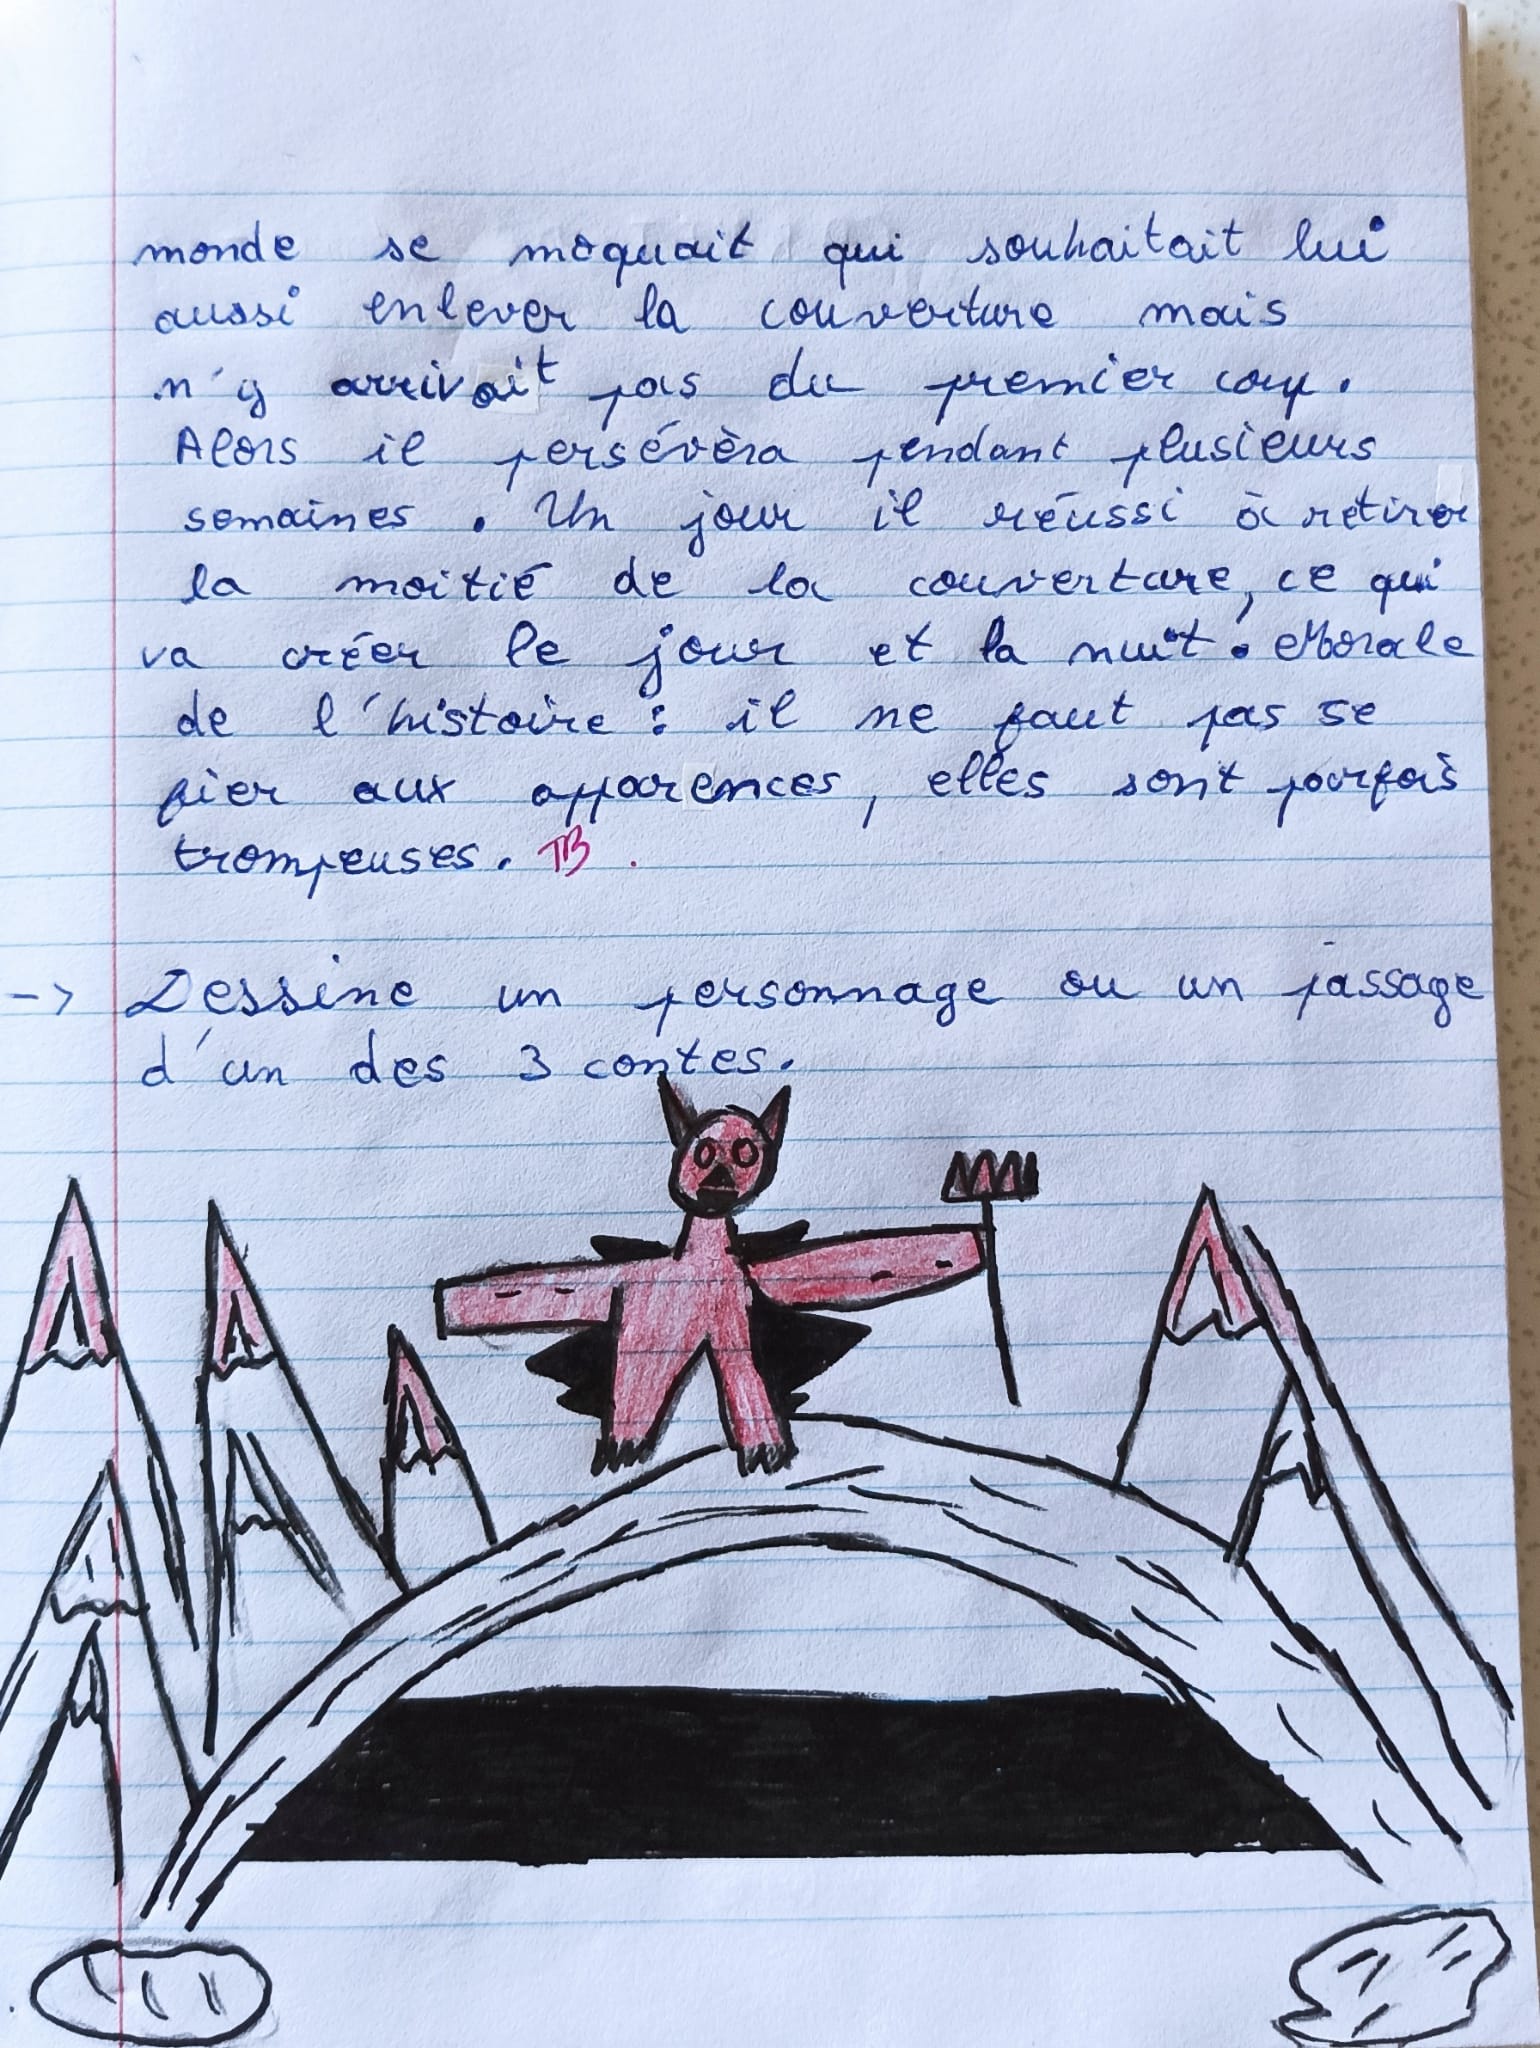 monde se moquait qui souhaitait lui
aussi enlever la couverture mais
n'y arrivait pas du premier coup.
Alors il persévèra pendant plusieurs
semaines. Un jour il réussi à retirer
la moitié de la couverture, ce qui
va créer le jour et la nuit. Morale
de l'histoire : il ne faut pas se
fier aux apparences, elles sont parfois
trompeuses. TB.
-> Dessine un personnage ou un passage
d'un des 3 contes.